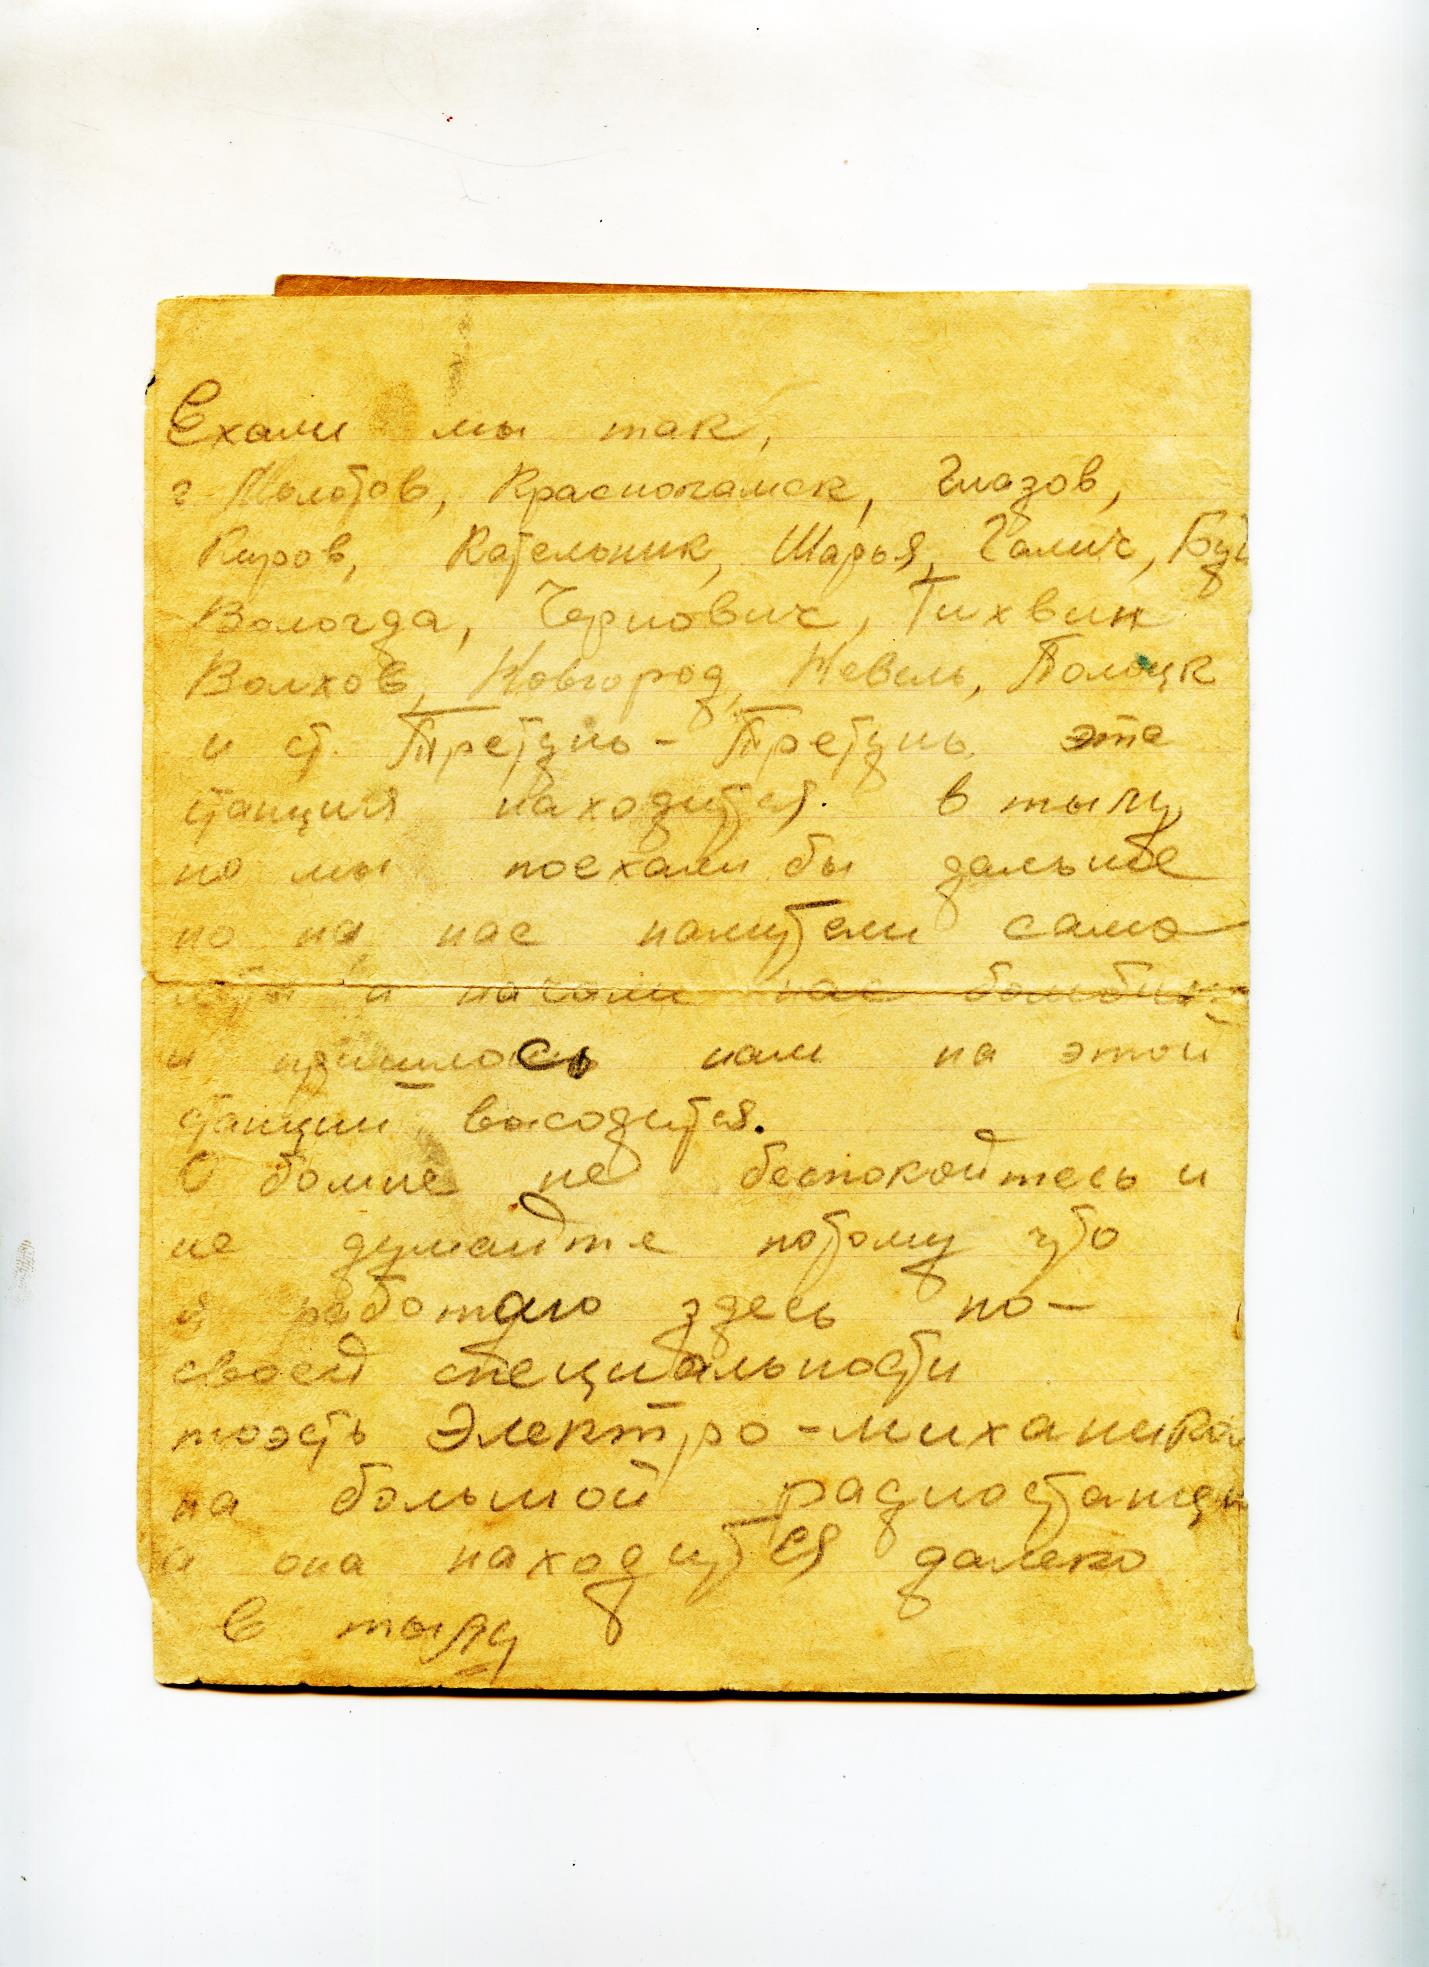 Ехали мы так,
г Молотов, Краснокамск, Глазов,
Киров, Кательник, Шарья, Галич, Буй
Вологда, Черпович, Тихвин
Волхов, Новгород, Невель, Полоцк
и ст. Претунь - Претунь эта
станция находится в тылу
но мы поехали бы дальше
но на нас налители само
лёты и начали нас бомбить
и пришлось нам на этой
станции высодится.
О бомне не беспокойтесь и
не думайте потому что
я работаю здесь по-
своей специальности
тоэсть Электро-михаником
на большой радиостанции
а она находится далеко
в тылу